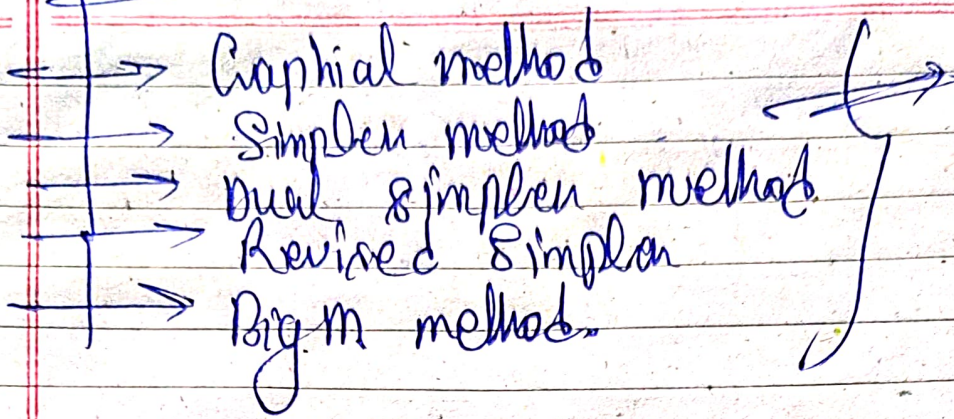 Graphial method
Simplex method
Dual simplex method
Revised Simplex
Big.M method.